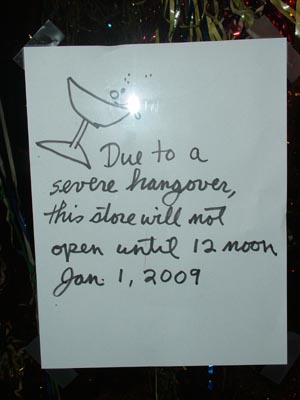 Due to a
severe hangover,
this store will not
open until 12 noon
Jan. 1, 2009